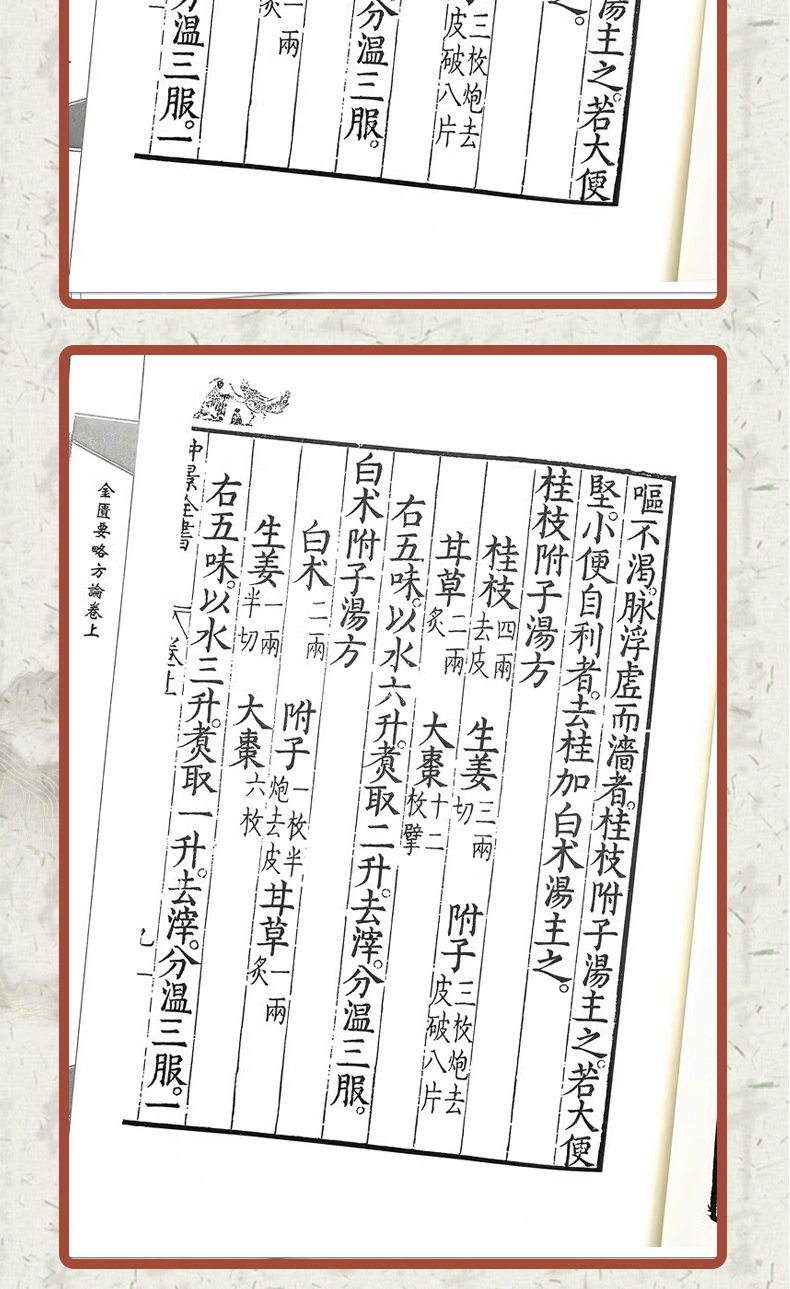 湯主之。若大便
之。
三枚炮去皮破八片
分温三服。
一兩炙
分温三服。一
嘔不渴。脉浮虛而濇者。桂枝附子湯主之。若大便
堅。小便自利者。去桂加白术湯主之。
桂枝附子湯方
桂枝四兩去皮 生姜三兩切 附子三枚炮去皮破八片
甘草二兩炙 大棗十二枚擘
右五味。以水六升。煮取二升。去滓。分温三服。
白术附子湯方
白术二兩 附子一枚半炮去皮 甘草一兩炙
生姜一兩半切 大棗六枚
右五味。以水三升。煮取一升。去滓。分温三服。一
仲景全書 卷上
金匱要略方論卷上